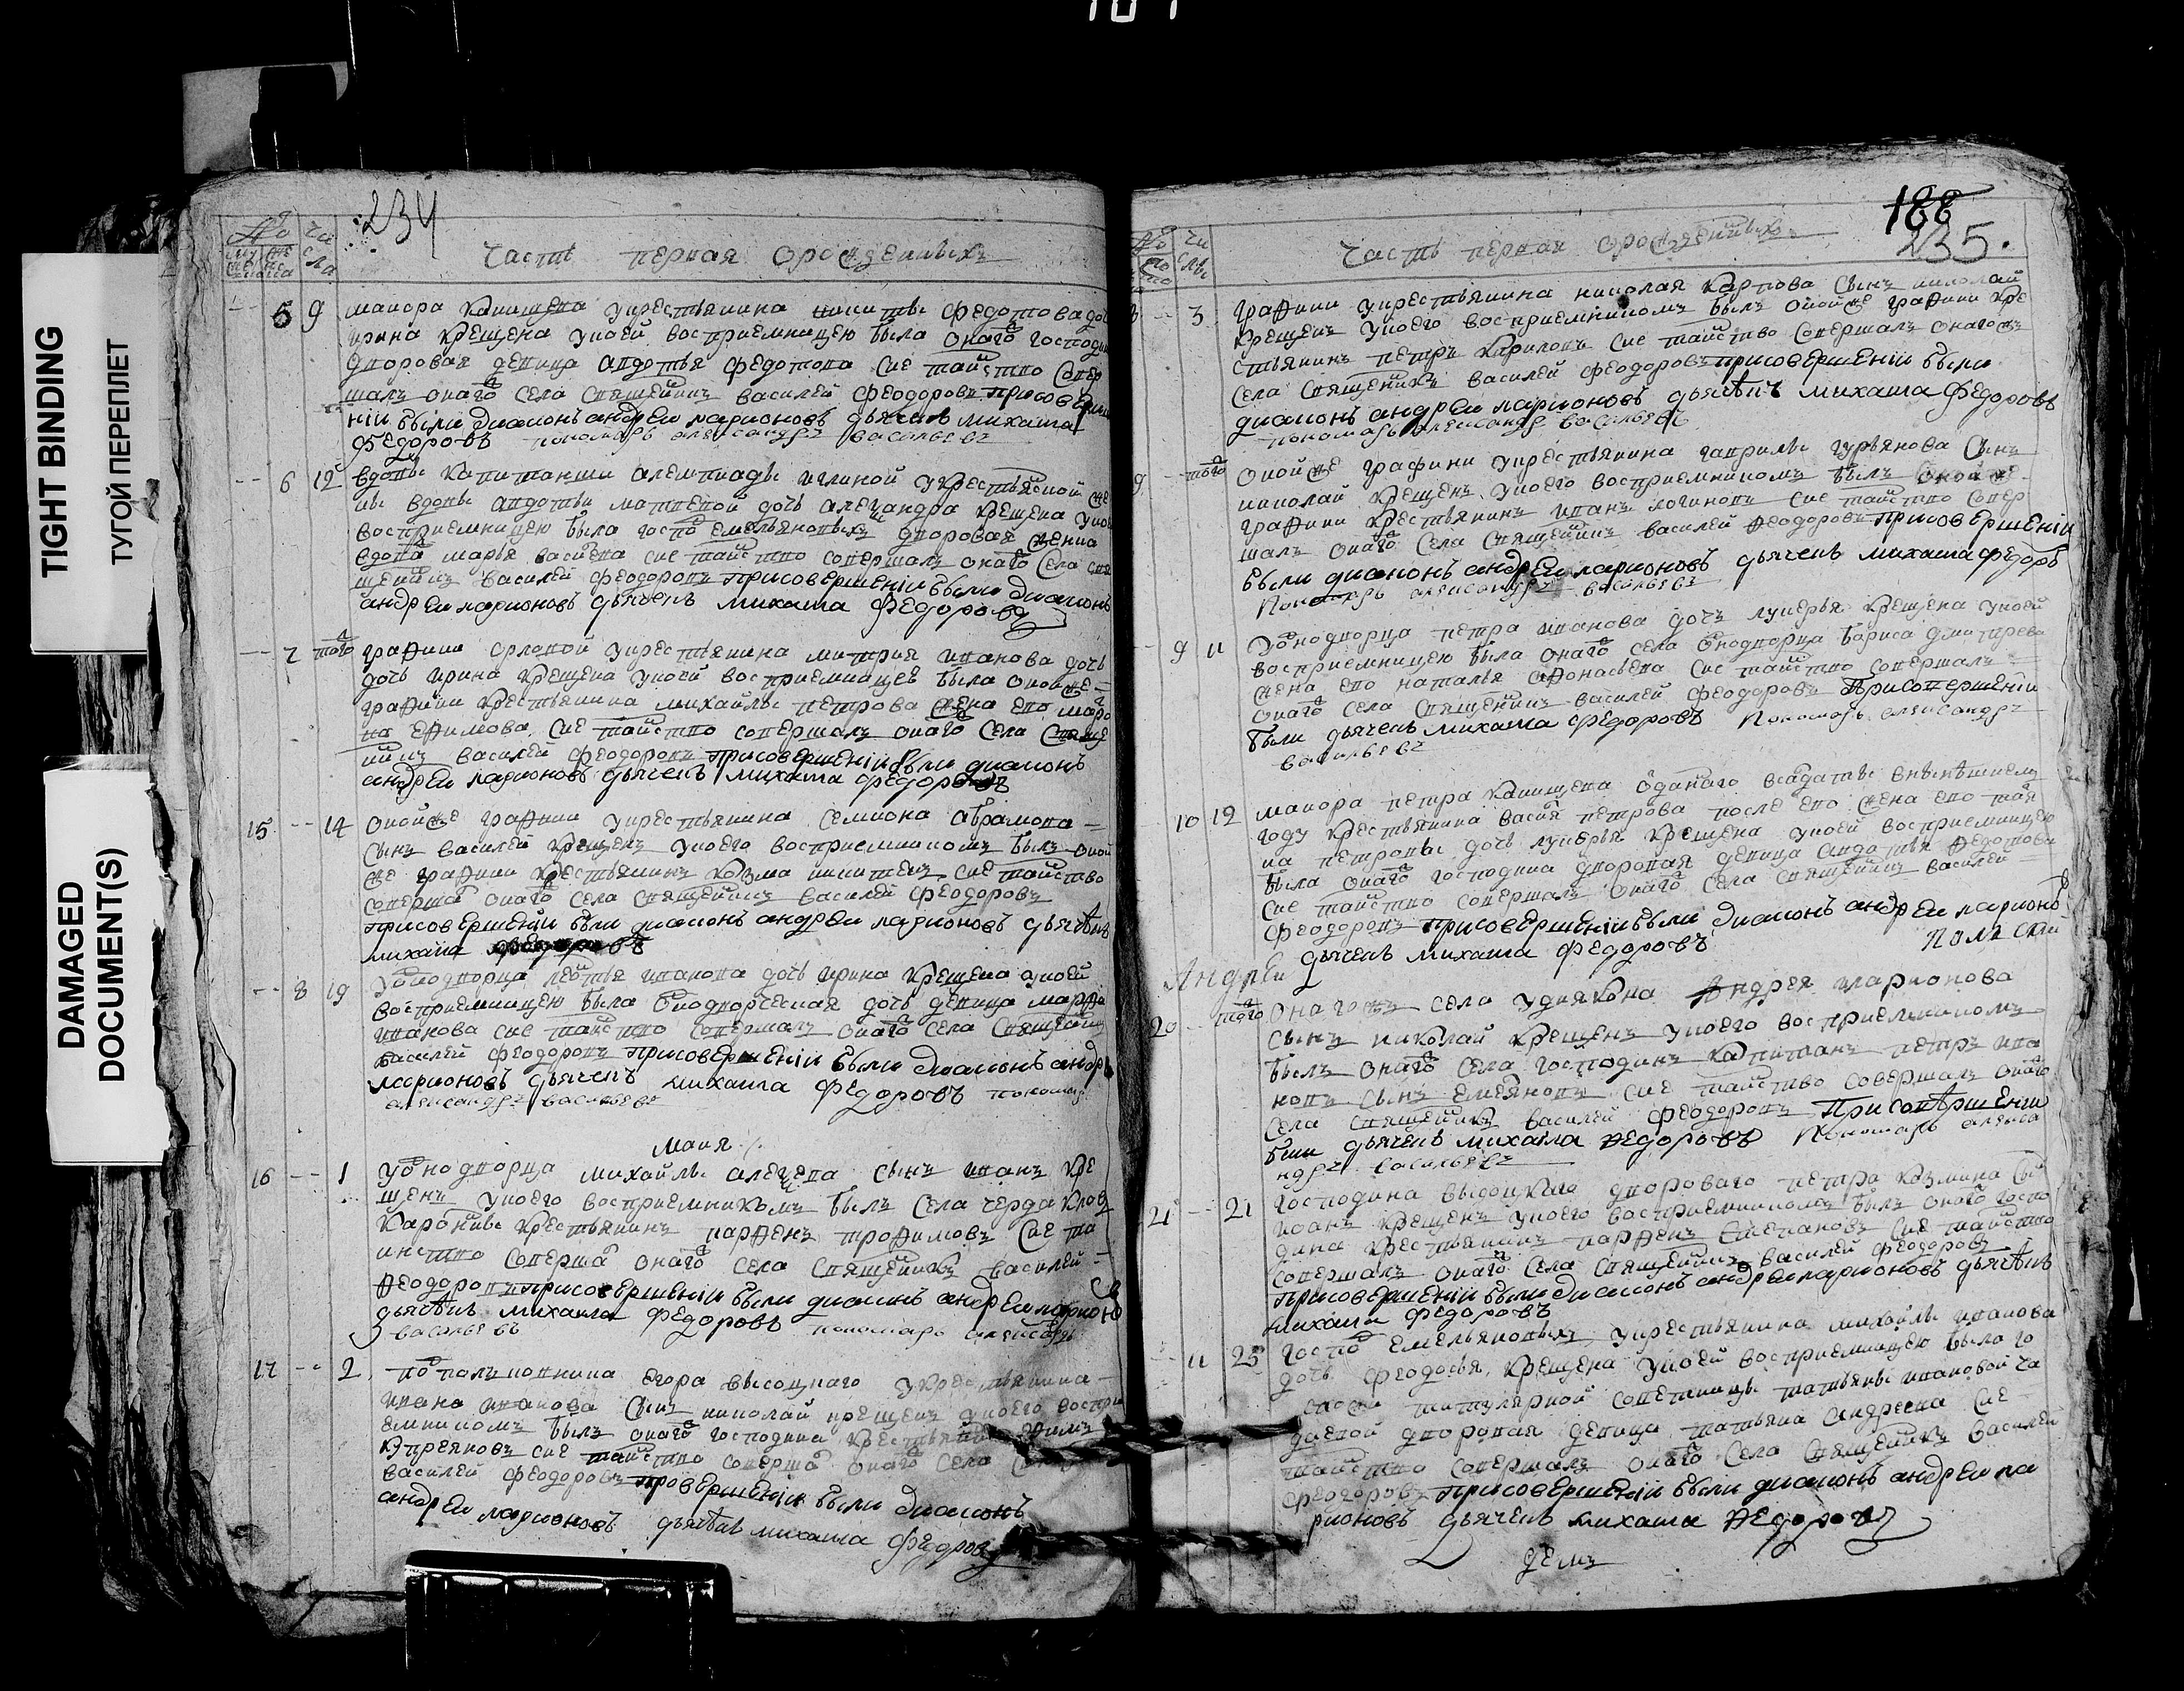 TIGHT BINDING
ТУГОЙ ПЕРЕПЛЕТ
DAMAGED
DOCUMENT(S)
234
Часть первая о рожденныхъ
5 9 маиора укрестьянина никиты федотова
ирина крещена унюей восприемницею была онаго господина
дворовая девица авдотья федотова сие таиство совер
шалъ онаго села священникъ василей феодоровъ присоверше
нiи были диаконъ андреи ларионовъ дьячекъ михаила
федоровъ пономарь александръ васильевъ
6 12 вдовы капитанши укрестьянской же
ны вдовы авдотьи матвевой дочь александра крещена унюей
восприемницею была госпо емельяновыхъ дворовая женка
вдова марья василева сие таиство совершалъ онаго села свя
щенникъ василей феодоровъ присовершенiи были диаконъ
андреи ларионовъ дьячекъ михаила федоровъ
7 того графини орловой укрестьянина митрия иванова дочь
дочь ирина крещена унюей восприемницею была оной же
графини крестьянина михайлы петрова жена ево
на ефимова сие таиство совершалъ онаго села свяще
нникъ василей феодоровъ присовершенiи были диаконъ
андреи ларионовъ дьячекъ михаила федоровъ
15 14 оной же графини укрестьянина семиона аврамова
сынъ василей крещенъ унюего восприемникомъ былъ оной
же графини крестьянинъ козма никитинъ сие таиство
соверша онаго села священникъ василей феодоровъ
присовершенiи были диаконъ андреи ларионовъ дьячекъ
михаила федоровъ
8 19 иванова дочь ирина крещена унюей
восприемницею была однодворческая дочь девица марфа
иванова сие таиство совершалъ онаго села священникъ
василей феодоровъ присовершенiи были диаконъ андре
ларионовъ дьячекъ михаила федоровъ пономарь
александръ васильевъ
маия
16 1 уоднодворца михайлы алексева сынъ иванъ кре
щенъ унюего восприемникомъ былъ села
крестьянинъ парфенъ трофимовъ сие та
инство соверша онаго села священникъ василей
феодоровъ присовершенiи были диаконъ андреи ларионо
дьячекъ михаила федоровъ пономарь александръ
васильевъ
17 2 егора высоцкаго укрестьянина
ивана иванова сынъ николай крещенъ унюего воспри
емникомъ былъ онаго господина
сие таиство соверша онаго села
василей феодоровъ присовершенiи были диаконъ
андреи ларионовъ дьячекъ михаила федоровъ
188
235.
Часть первая о рожденныхъ
3 графини укрестьянина николая карпова сынъ николай
крещенъ унюего восприемникомъ былъ оной же графини кре
стьянинъ петръ кириловъ сие таиство совершалъ онагожъ
села священникъ василей феодоровъ присовершенiи были
диаконъ андреи ларионовъ дьячекъ михаила федоровъ
пономарь александръ васильевъ
того оной же графини укрестьянина гаврилы гурьянова сынъ
николай крещенъ унюего восприемникомъ былъ оной же
графини крестьянинъ иванъ логиновъ сие таиство совер
шалъ онаго села священникъ василей феодоровъ присовершенiи
были диаконъ андреи ларионовъ дьячекъ михаила федоровъ
пономарь александръ васильевъ
9 11 уоднодворца петра иванова дочь лукерья крещена унюей
восприемницею была онаго села однодворца бориса дмитрева
жена ево наталья афонасьева сие таиство совершалъ
онаго села священникъ василей феодоровъ присовершенiи
были дьячекъ михаила федоровъ пономарь александръ
васильевъ
10 12 маиора петра
году крестьянина василя петрова после ево жена ево
на петровы дочь лукерья крещена унюей восприемницею
была онаго господина дворовая девица авдотья федотова
сие таиство совершалъ онаго села священникъ василей
феодоровъ присовершенiи были диаконъ андреи ларионо
дьячекъ михаила федоровъ
Андрей
20 того онагожъ села удиякона Андрея иларионова
сынъ николай крещенъ унюего восприемникомъ
былъ онаго села господинъ капитанъ петръ ива
новъ сынъ сие таиство совершалъ онаго
села священникъ василей феодоровъ присовершенiи
были дьячекъ михаила федоровъ пономарь алекса
ндръ васильевъ
21 21 господина высоцкаго дворового петра козмина сы
иоанъ крещенъ унюего восприемникомъ былъ онаго госпо
дина крестьянинъ парфенъ степановъ сие таиство
совершалъ онаго села священникъ василей феодоровъ
присовершенiи были диаконъ андреи ларионовъ дьячекъ
михаила федоровъ
11 25 госпо емельяновыхъ укрестьянина михайлы иванова
дочь феодосья крещена унюей восприемницею была го
титулярной советницы татьяны ивановой
дворовая девица татьяна андреева сие
таиство совершалъ онаго села священникъ василей
феодоровъ присовершенiи были диаконъ андреи ла
рионовъ дьячекъ михаила федоровъ